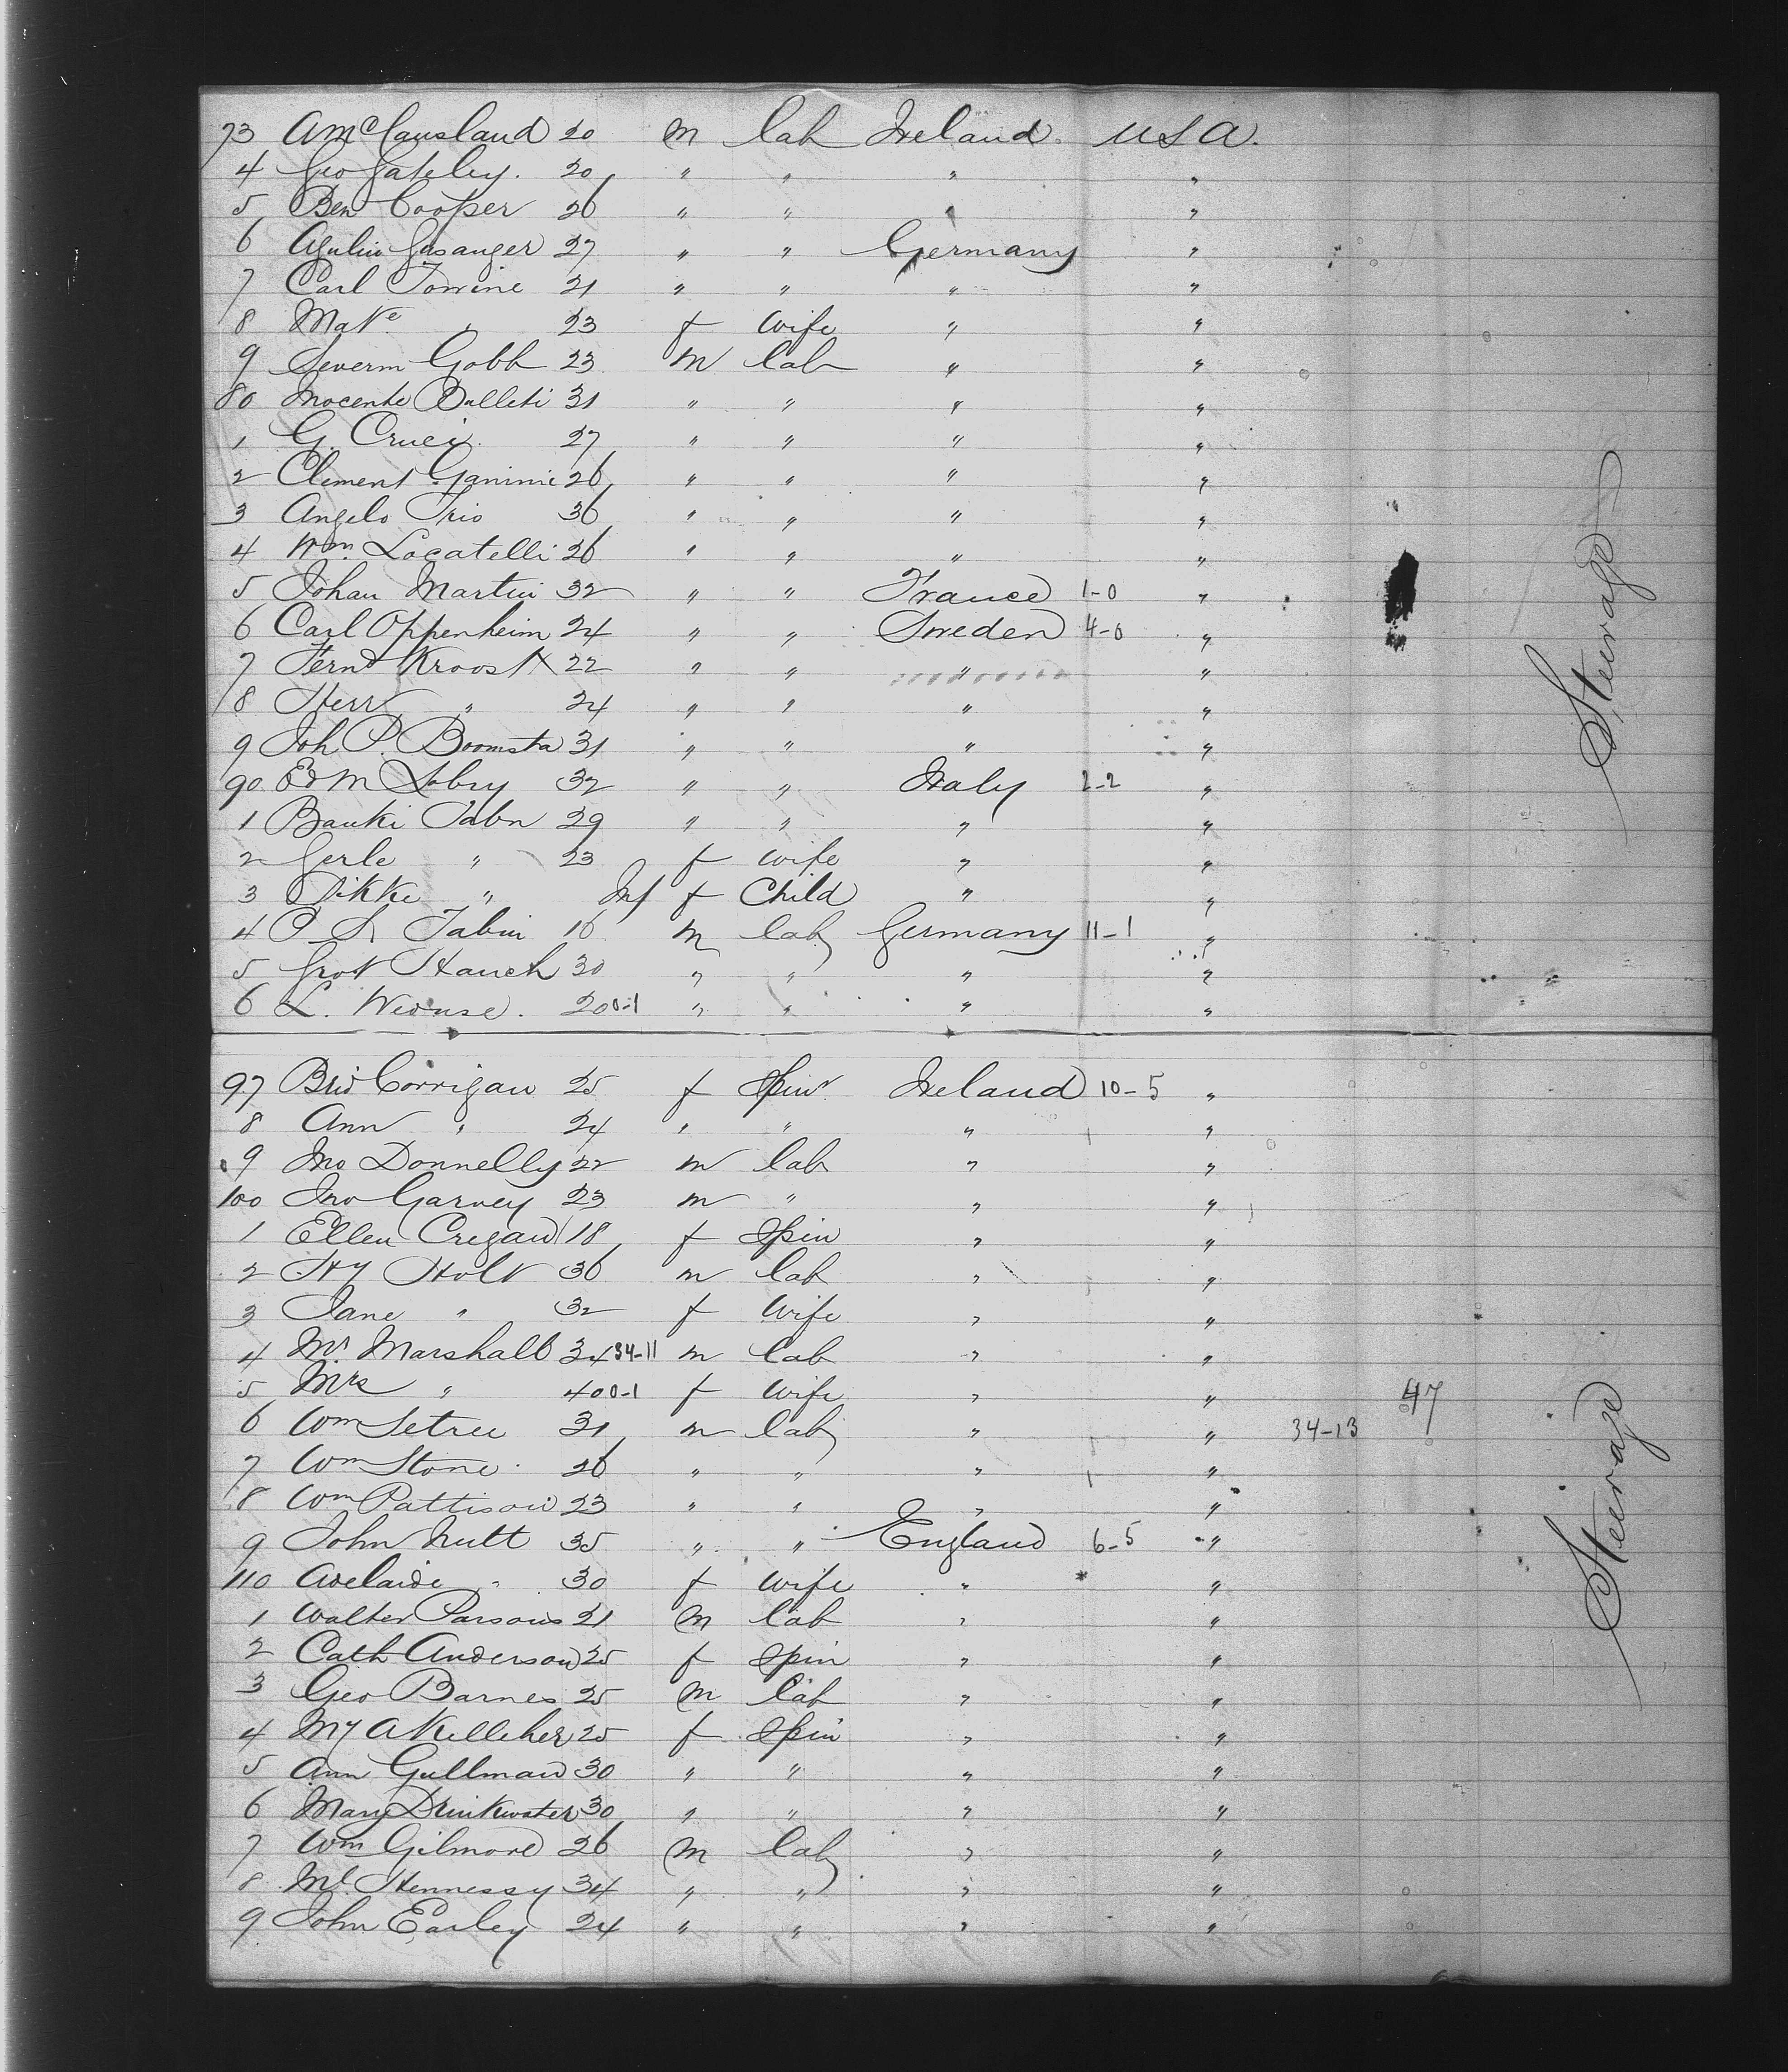 73 A McCausland 20 m lab Ireland. U S A.
4 Geo Gateley. 20 " " " "
5 Ben Cooper 26 " " " "
6 27 " " Germany "
7 Carl 21 " " " "
8 " 23 f wife " "
9 Severin Gobb 23 m lab " "
80 Inocente Balleti 31 " " " "
1 G. Cruci. 27 " " " "
2 Clement Ganimi 26 " " " "
3 Angelo Trio 36 " " " "
4 Wm. Locatelli 26 " " " "
5 Johan Martin 32 " " France 1-0 "
6 Carl Oppenheim 24 " " Sweden 4-0 "
7 Fernd Kroost 22 " " " "
8 Herr " 24 " " " "
9 Joh P. Boomsta 31 " " " "
90 Ed M 32 " " Italy 2-2 "
1 Bauki 29 " " " "
2 Gerle " 23 f wife " "
3 Dikke " Inf f Child " "
4 P S Tabin 16 m lab Germany 11-1 "
5 Hauch 30 " " " "
6 L. 20 0-1 " " " "
97 Brid Corrigan 25 f Spinr Ireland 10-5 "
8 Ann " 24 " " " "
9 Jno Donnelly 22 m lab " "
100 Jno Garvey 23 m " " "
1 Ellen Cregan 18 f Spin " "
2 Hy Holt 36 m lab " "
3 Jane " 32 f Wife " "
4 Mr. Marshall 34 34-11 m lab " "
5 Mrs " 40 0-1 f Wife " " 47
6 Wm Setree 31 m lab " " 34-13
7 Wm Stone. 26 " " " "
8 Wm Pattison 23 " " " "
9 John Nutt 35 " " England 6-5 "
110 Adelaide " 30 f Wife " "
1 Walter Parsons 21 m lab " "
2 Cath Anderson 25 f Spin " "
3 Geo Barnes 25 m lab " "
4 My A Kelleher 25 f Spin " "
5 Ann Gullman 30 " " " "
6 Mary Drinkwater 30 " " " "
7 Wm Gilmore 26 m lab " "
8 Ml. Hennessy 34 " " " "
9 John Earley 24 " " " "
Steirage
Steirage